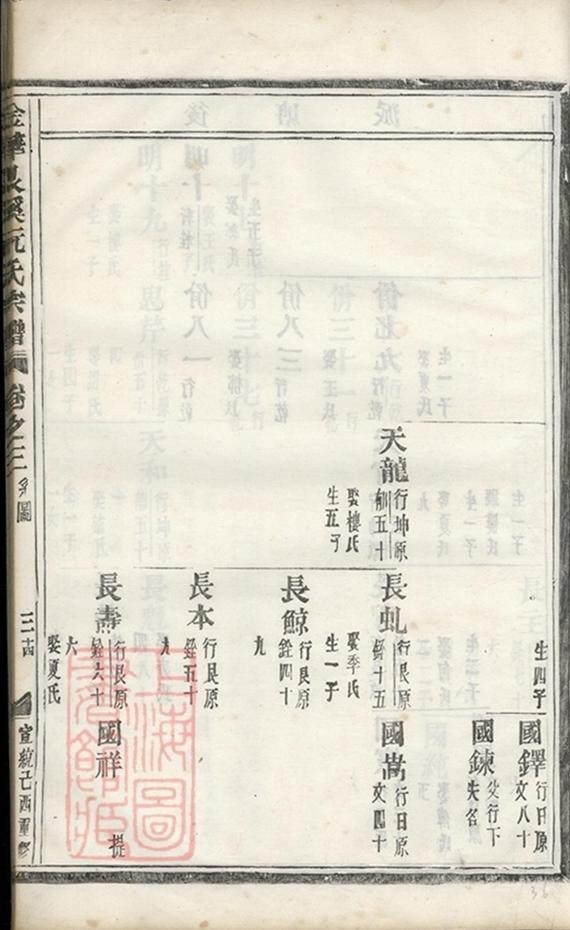 生四子
國鐸
行日原
文八十
國鍊
行下
失名
天龍
行坤原
郁五十
娶樓氏
生五子
長虬
行艮原
銓十五
娶季氏
生一子
國嵩
行日原
文四十
長鯨
行艮原
銓四十
九
長本
行艮原
銓五十
九
長壽
行艮原
銓六十
六
娶夏氏
國祥
提
金華長溪阮氏宗譜
卷之三
系圖
三十四
宣統己酉重修
上海圖書館藏